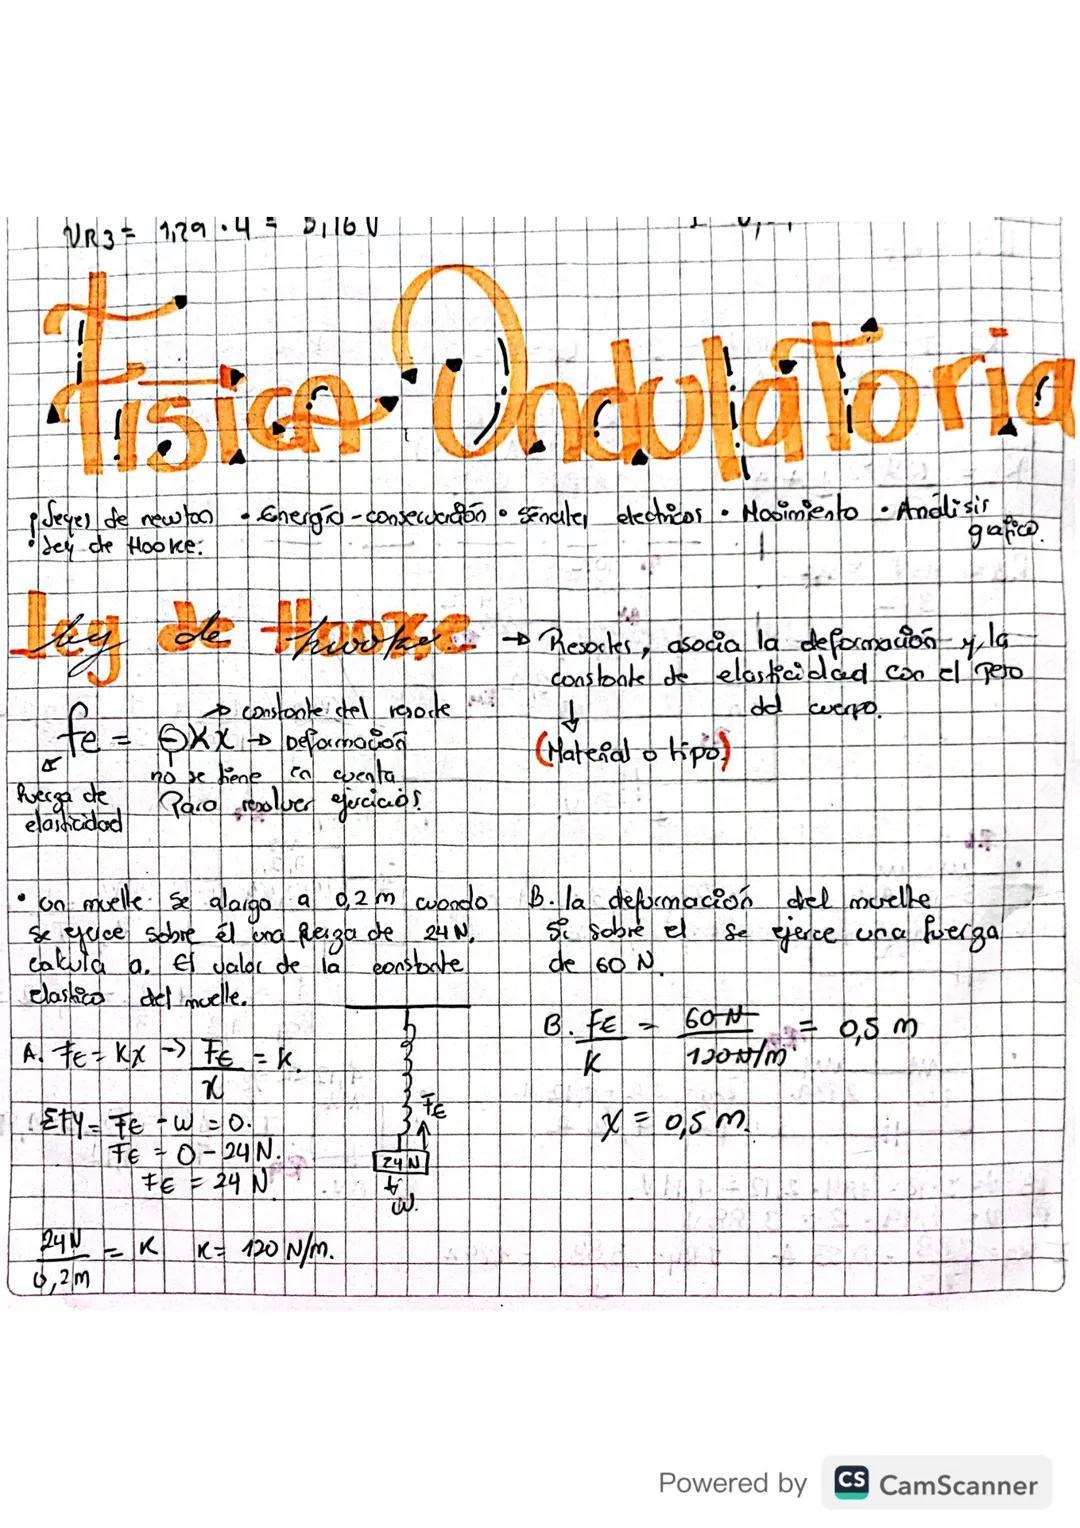 VR3 = 1,29 · 4 = 5,16 V
Física Ondulatoria
· Leyes de newton · Energía - conservación · Señales electricas · Movimiento · Análisis grafico.
· Ley de Hooke.
Ley de Hooke
→ Resortes, asocia la deformación y la
constante de elasticidad con el peso
del cuerpo.
↓
(Material o tipo)
→ constante del resorte
fe = ⊖KX → Deformación
no se tiene en cuenta
Para resolver ejercicios.
Fuerza de
elasticidad
· un muelle se alarga a 0,2 m cuando
se ejerce sobre él una fuerza de 24 N.
calcula a. El valor de la constante
elastica del muelle.
A. FE = KX -> FE/X = K.
ΣFY = FE - W = 0.
FE = 0 - 24 N.
FE = 24 N
24 N/0,2 m = K K = 120 N/m.
FE
24 N
W.
B. la deformación del muelle
si sobre el se ejerce una fuerza
de 60 N.
B. FE/K = 60 N/120 N/m = 0,5 m
X = 0,5 m.
Powered by CS CamScanner